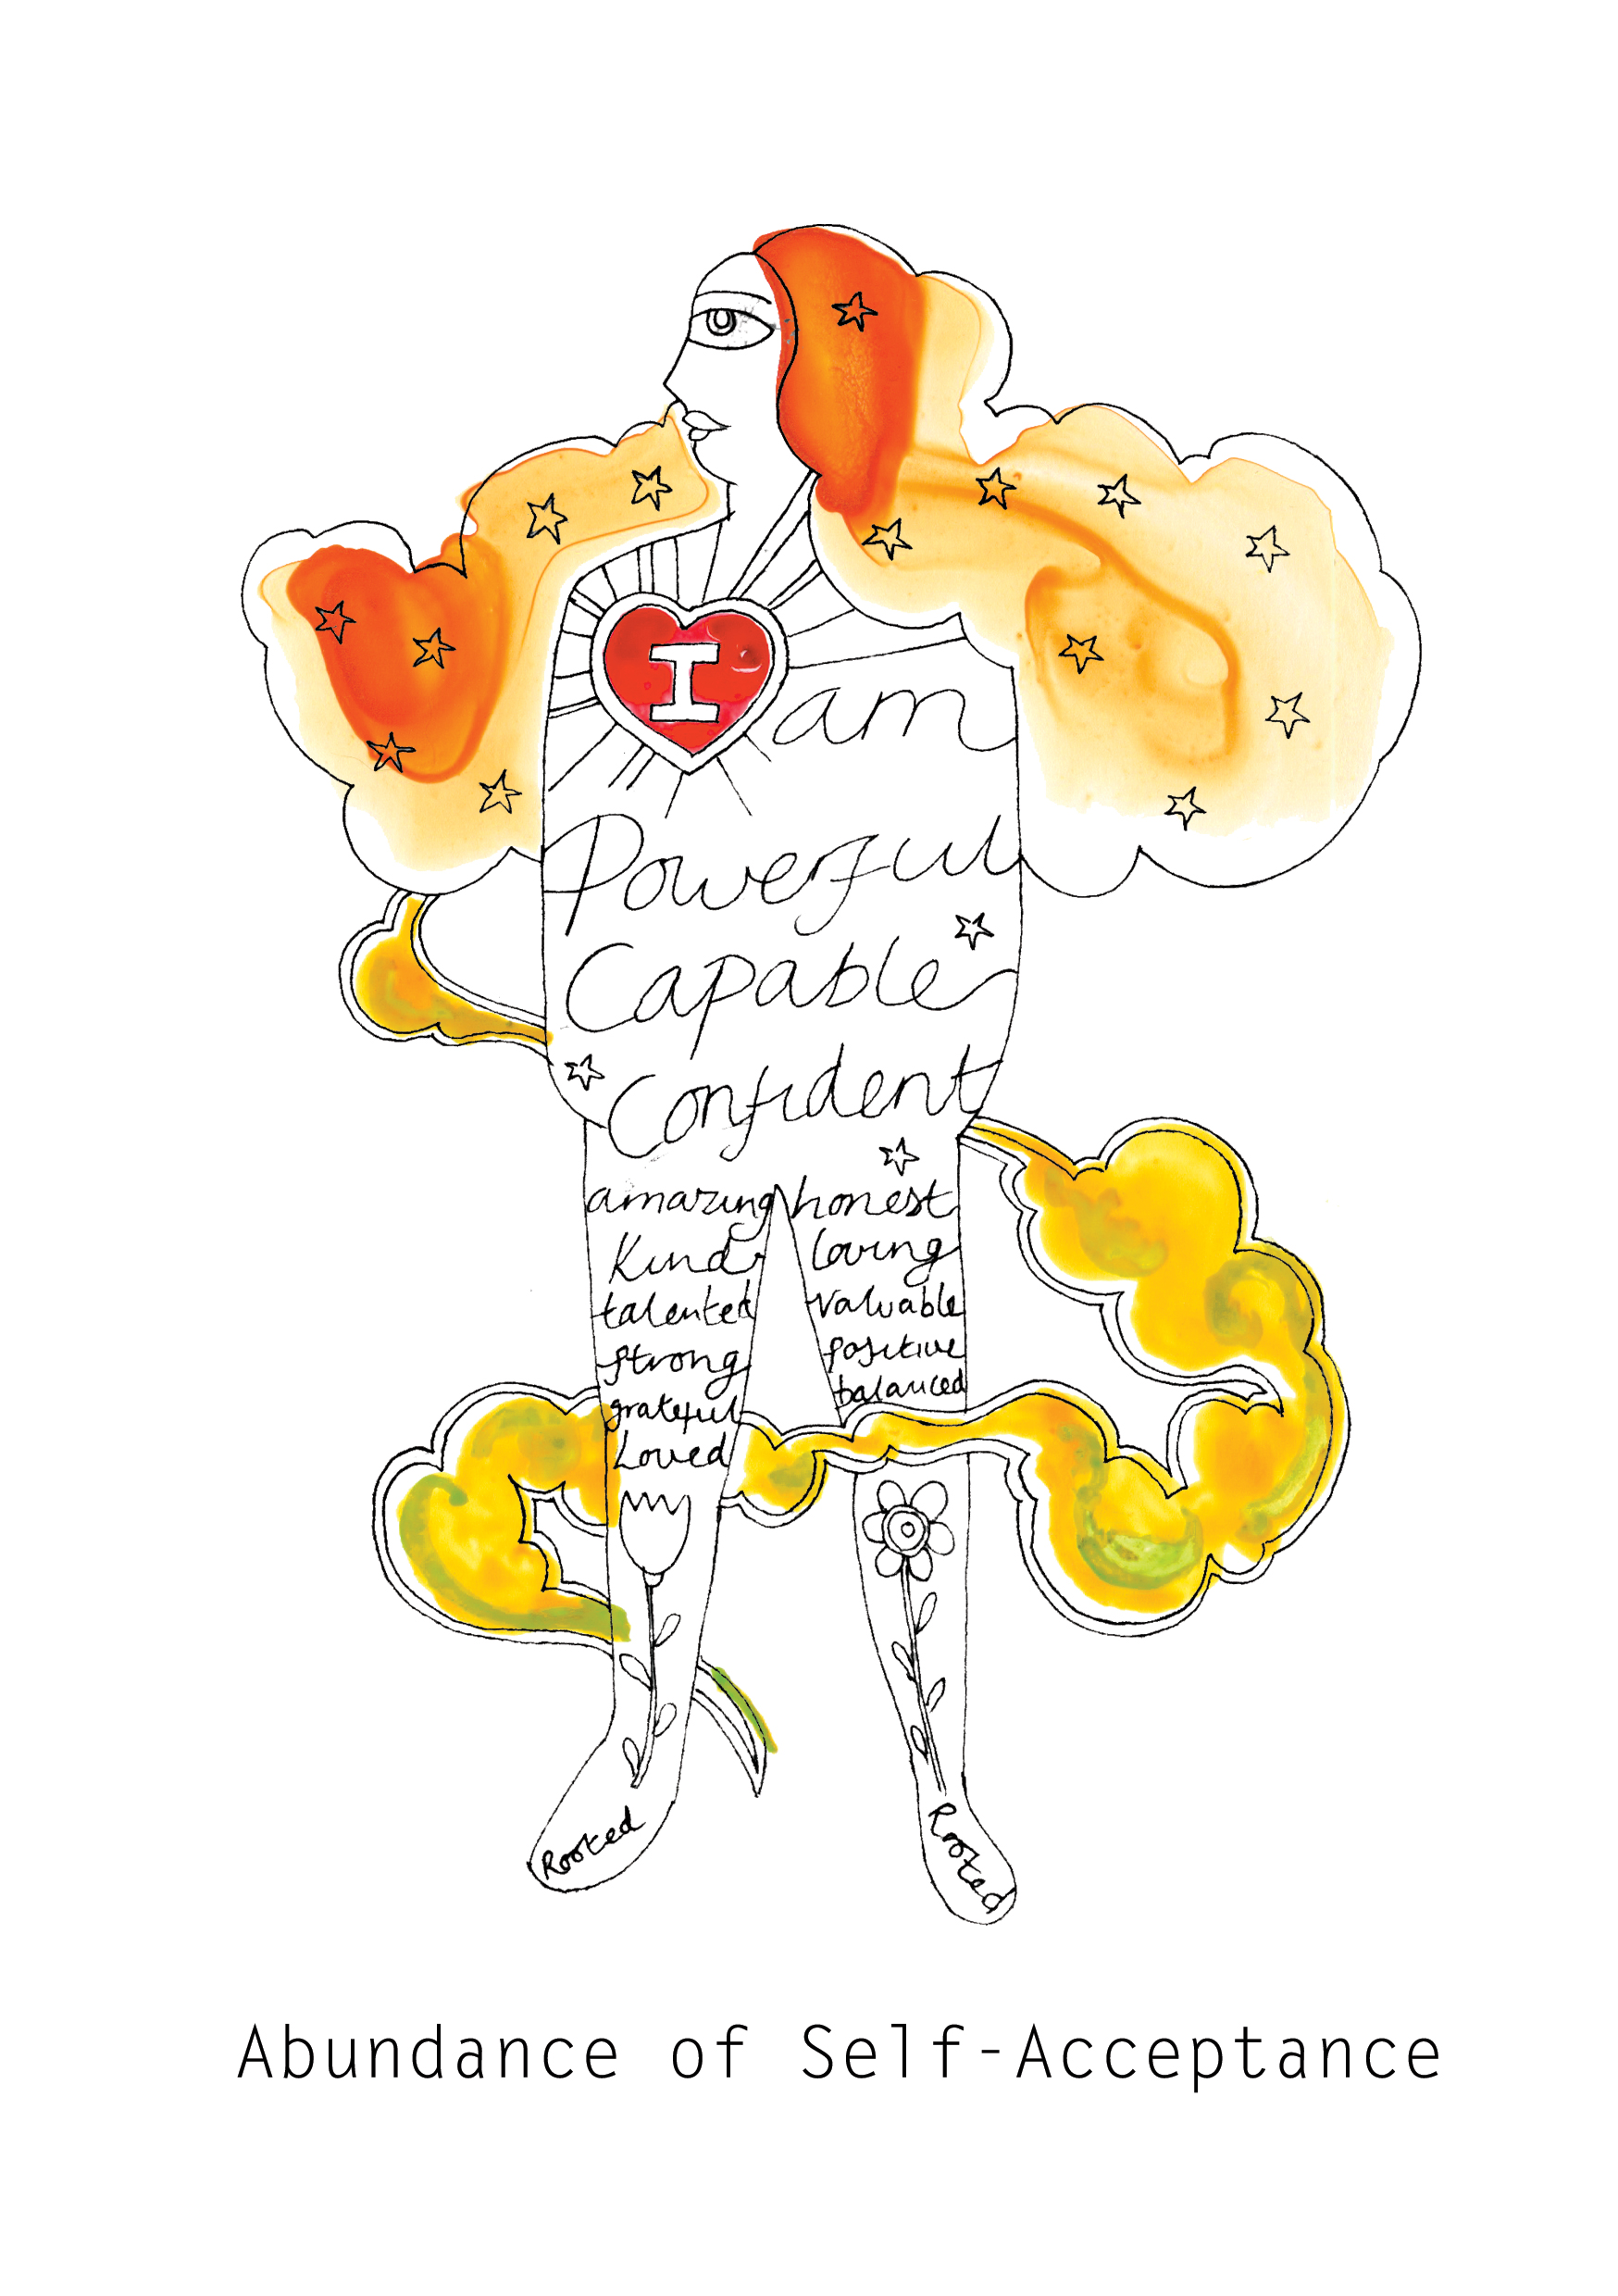 I am
Powerful
Capable
Confident
amazing
Kind
talented
strong
grateful
Loved
honest
loving
valuable
positive
balanced
Rooted
Rooted
Abundance of Self-Acceptance